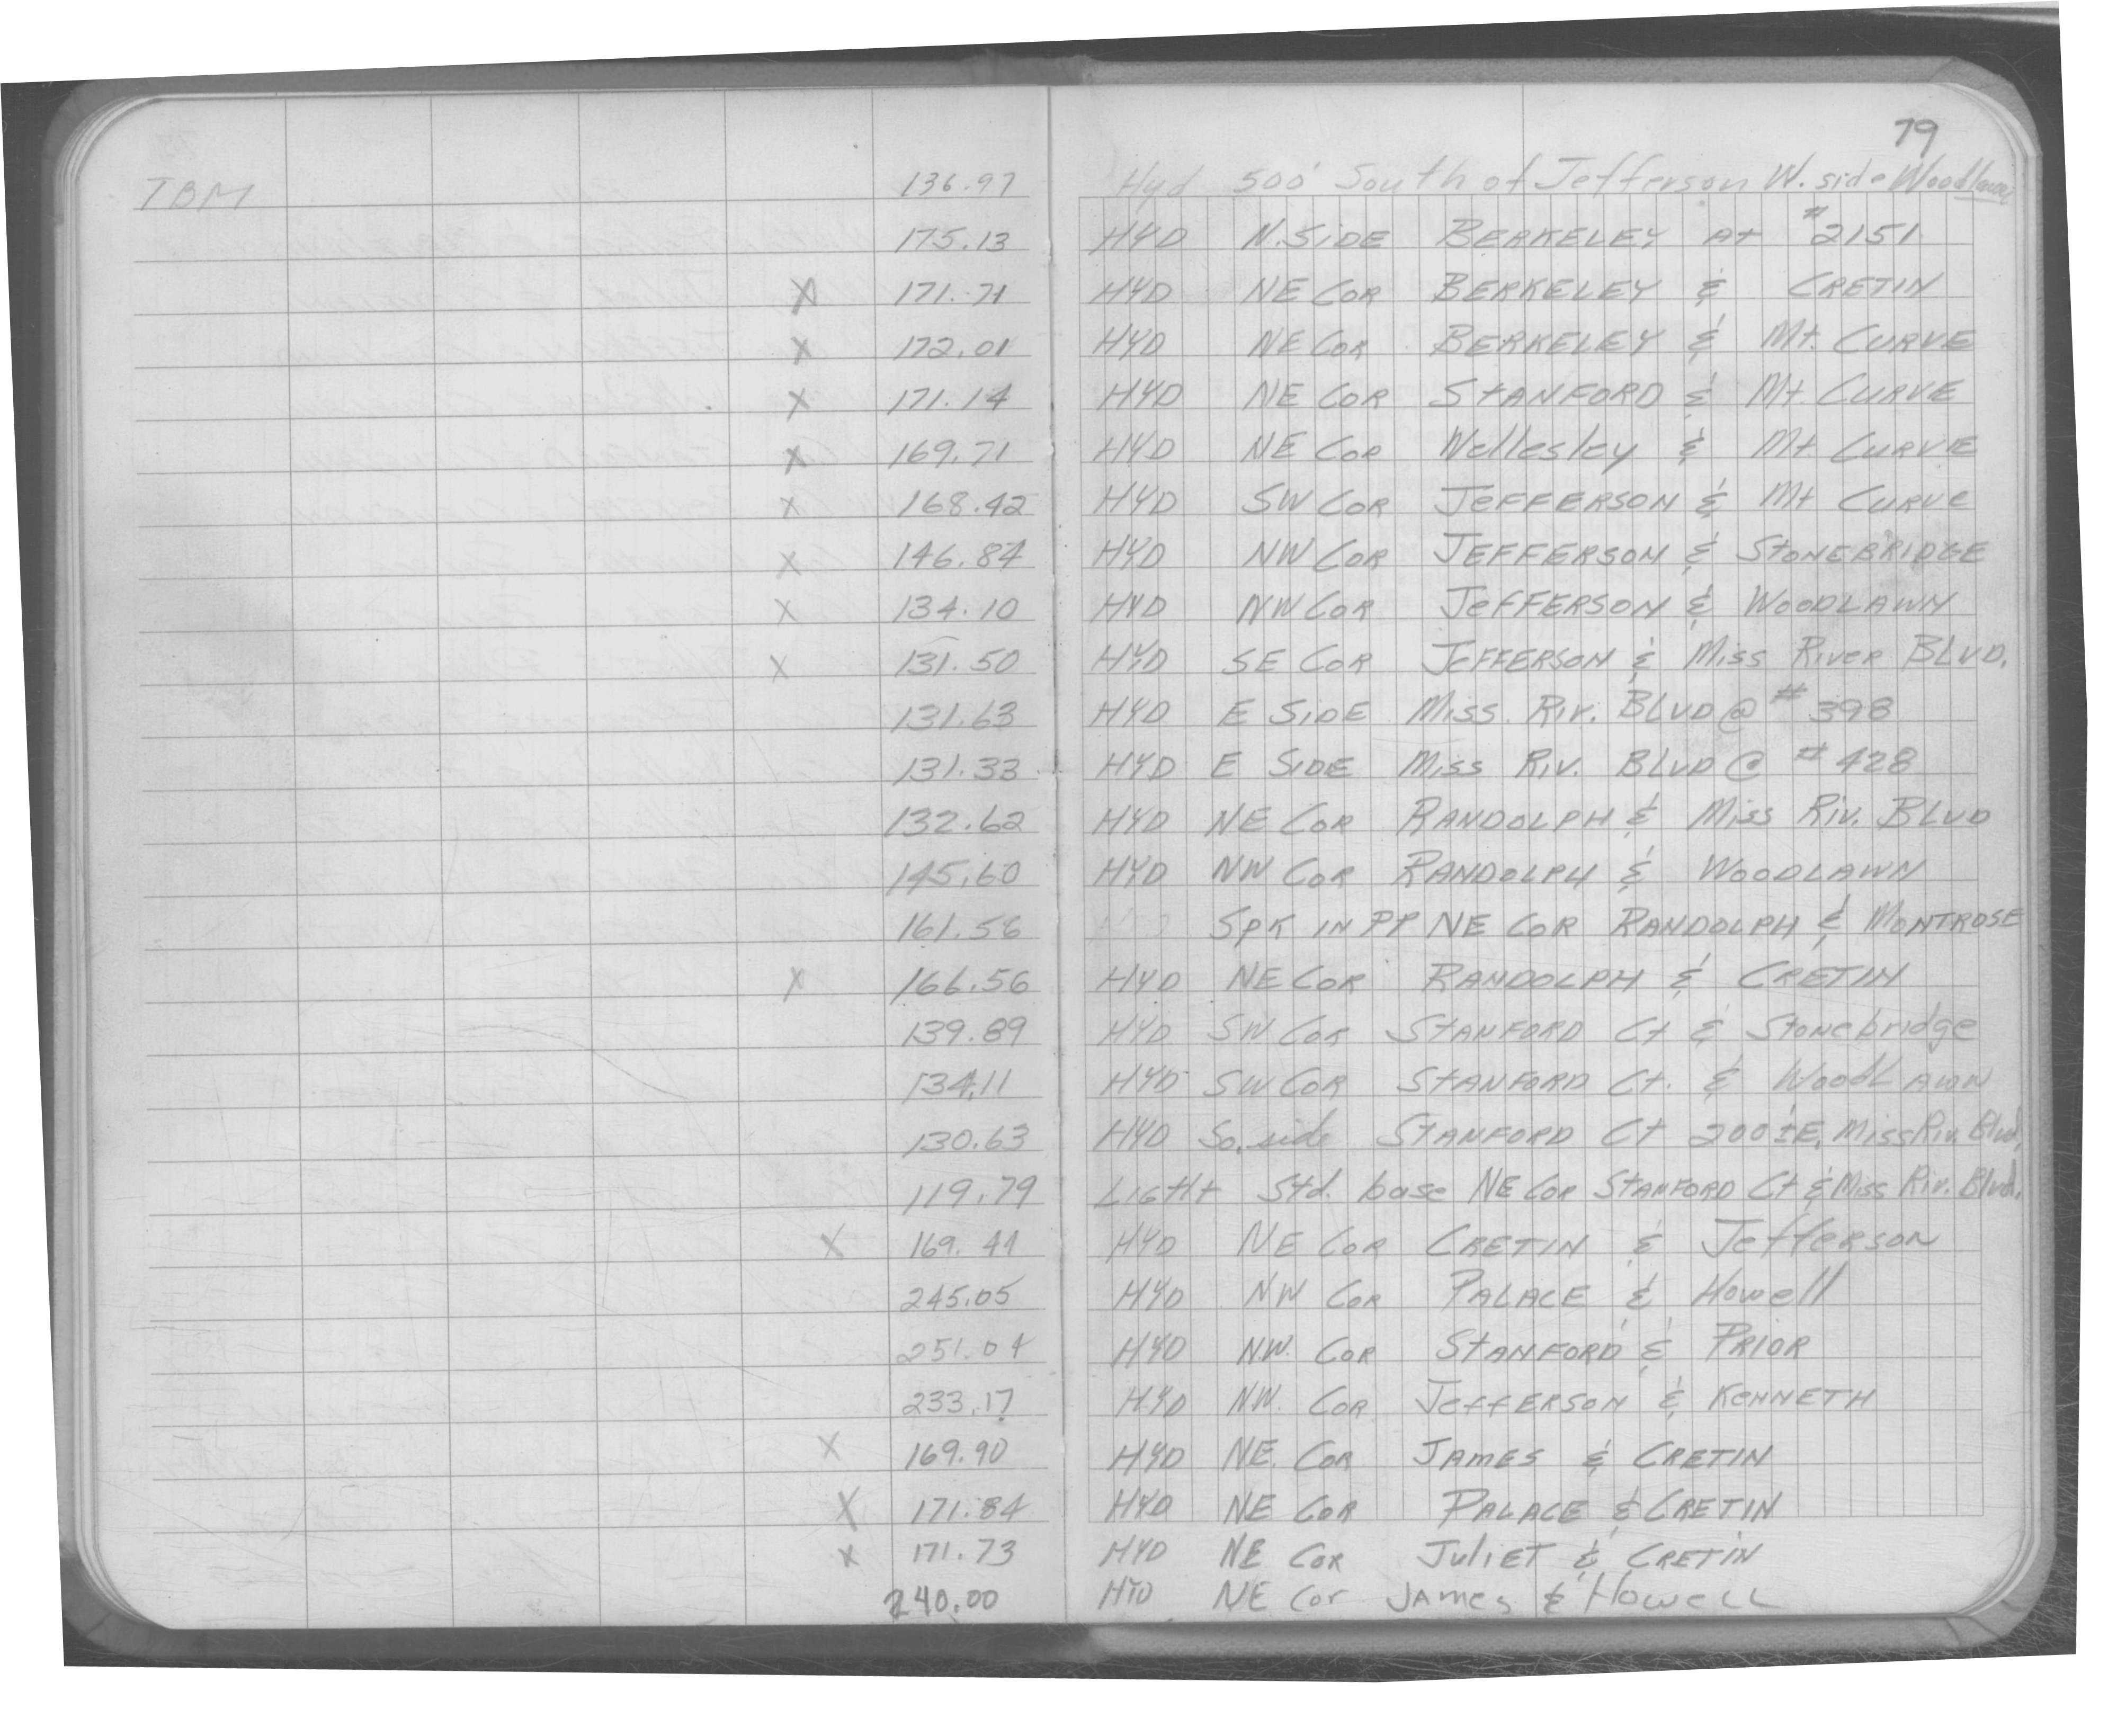 79
TBM 136.97 Hyd 500' South of Jefferson W. side Woodlawn
175.13 HYD N. SIDE BERKELEY At #2151
X 171.71 HYD NE COR BERKELEY & CRETIN
X 172.01 HYD NE COR BERKELEY & Mt. CURVE
X 171.14 HYD NE COR STANFORD & Mt. CURVE
X 169.71 HYD NE COR Wellesley & Mt CURVE
X 168.42 HYD SW COR JEFFERSON & Mt CURVE
X 146.84 HYD NW COR JEFFERSON & STONEBRIDGE
X 134.10 HYD NW COR JEFFERSON & WOODLAWN
X 131.50 HYD SE COR JEFFERSON & Miss RIVER BLVD.
131.63 HYD E SIDE Miss. RIV. BLVD @ #398
131.33 HYD E SIDE Miss RIV. BLVD @ #428
132.62 HYD NE COR RANDOLPH & Miss RIV. BLVD
145.60 HYD NW COR RANDOLPH & WOODLAWN
161.56 SPK IN PP NE COR RANDOLPH & MONTROSE
X 166.56 HYD NE COR RANDOLPH & CRETIN
139.89 HYD SW COR STANFORD Ct & Stonebridge
134.11 HYD SW COR STANFORD Ct. & WOODLAWN
130.63 HYD So. side STANFORD Ct 200'± E. Miss Riv. Blvd.
119.79 LIGHt Std. base NE COR STANFORD Ct & Miss Riv. Blvd.
X 169.44 HYD NE COR CRETIN & JeffeRSON
245.05 HYD NW COR PALACE & Howell
251.04 HYD NW. COR STANFORD & PRIOR
233.17 HYD NW. COR JeffERSON & KENNETH
X 169.90 HYD NE. COR JAMES & CRETIN
X 171.84 HYD NE COR PALACE & CRETIN
X 171.73 HYD NE COR JuliET & CRETIN
240.00 HYD NE Cor JAmes & Howell